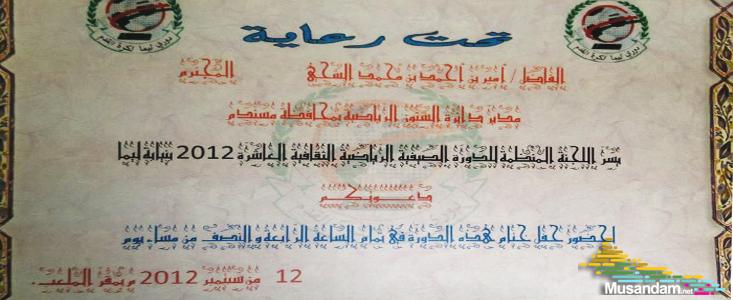 دوري ليما لكرة القدم
دوري ليما لكرة القدم
تحت رعاية
الفاضل / أمير بن أحمد بن محمد الشحي المحترم
مدير دائرة الشئون الرياضية بمحافظة مسندم
يسر اللجنة المنظمة للدورة الصيفية الرياضية الثقافية العاشرة 2012 بنيابة ليما
دعوتكم
لحضور حفل ختام هذه الدورة في تمام الساعة الرابعة و النصف من مساء يوم
12 من سبتمبر 2012 م بمقر الملعب.
Musandam.net